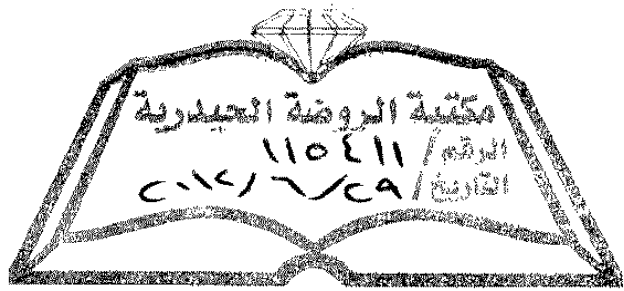 مكتبة الروضة الحيدرية
الرقم / ١١٥٤١١
التاريخ / ٢٩/٦/٢٠١٢